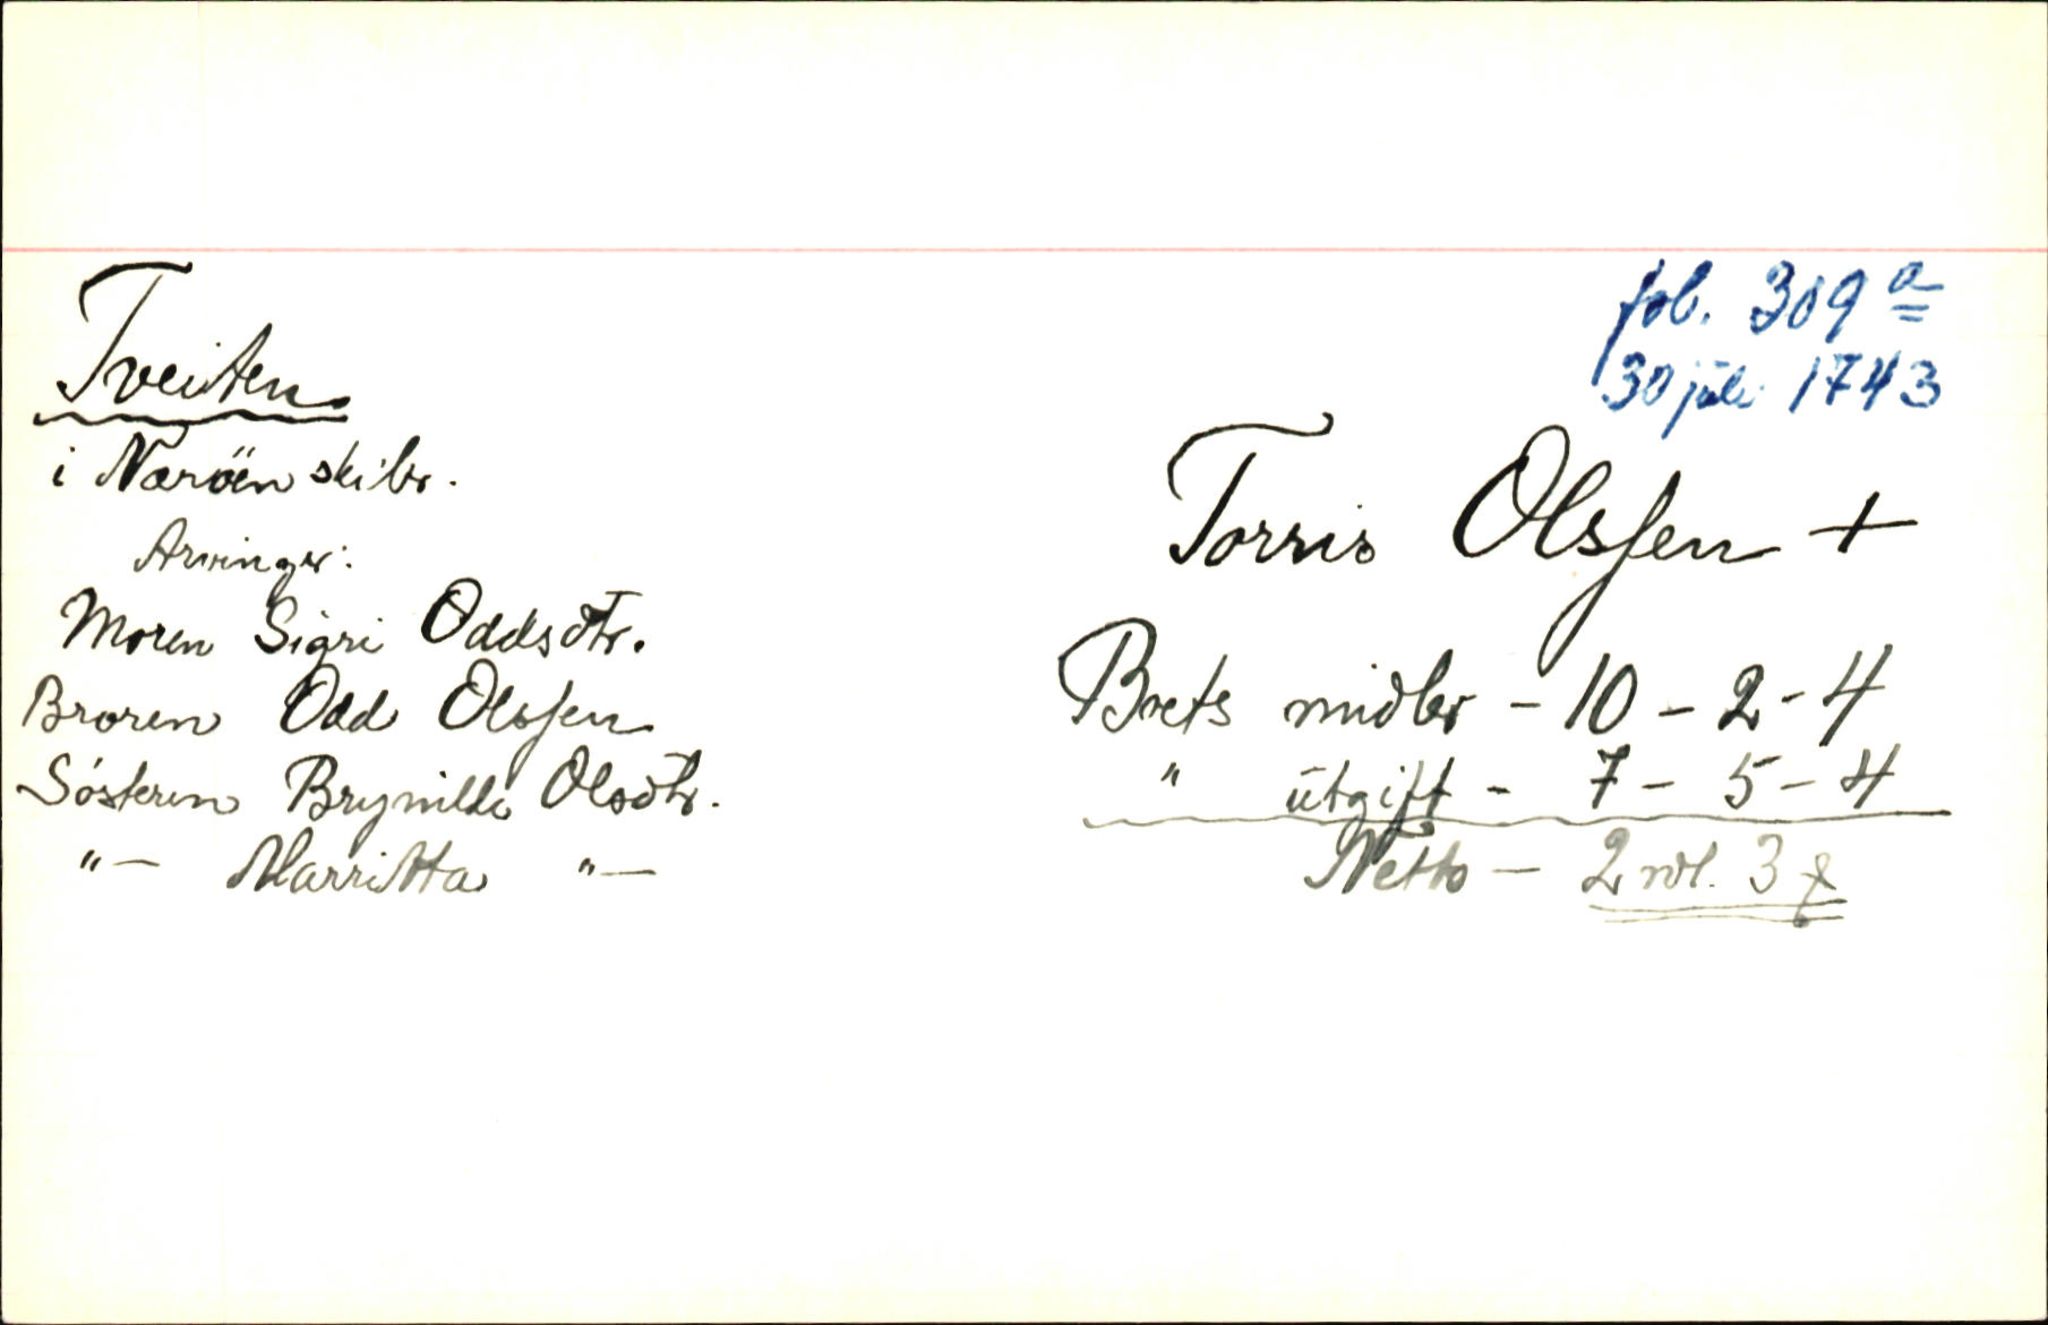 fol. 309 a
30 juli 1743
Tveiten
i Nærøen skibr.
Torris Olssen +
Arvinger:
Moren Sigri Oddsdtr.
Broren Odd Olssen
Søsteren Brynilda Olsdtr.
"— Marritta "—
Boets midler - 10 - 2 - 4
" utgift - 7 - 5 - 4
Netto - 2 rdl. 3